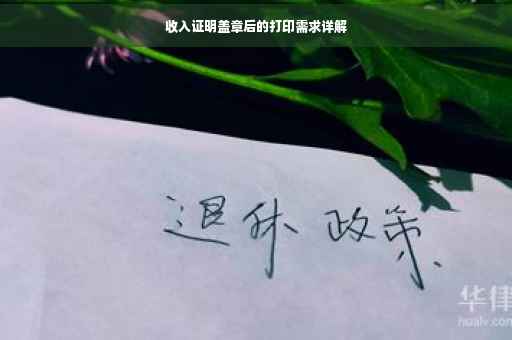 收入证明盖章后的打印需求详解
退休 政策
华律
hualv.com